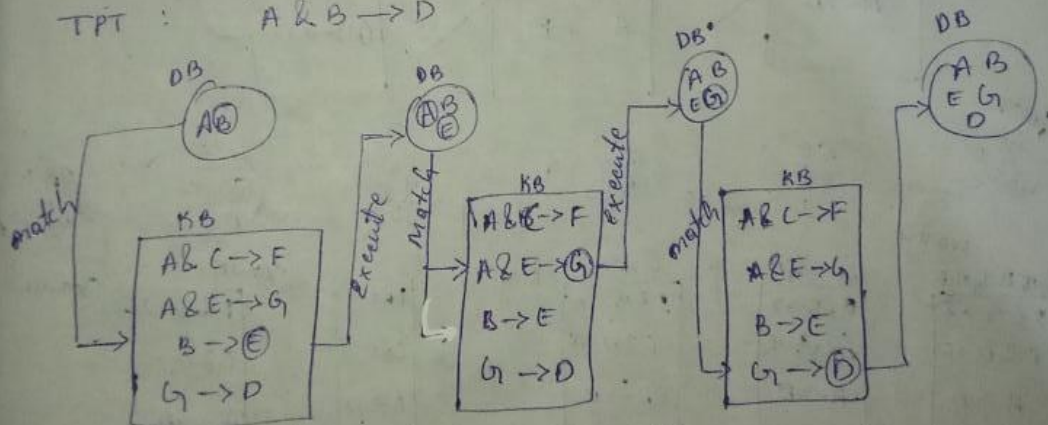 TPT : A & B → D
DB
AB
match
KB
A & C → F
A & E → G
B → E
G → D
Execute
DB
A B
E
Match
KB
A & C → F
A & E → G
B → E
G → D
Execute
DB
A B
E G
match
KB
A & C → F
A & E → G
B → E
G → D
DB
A B
E G
D